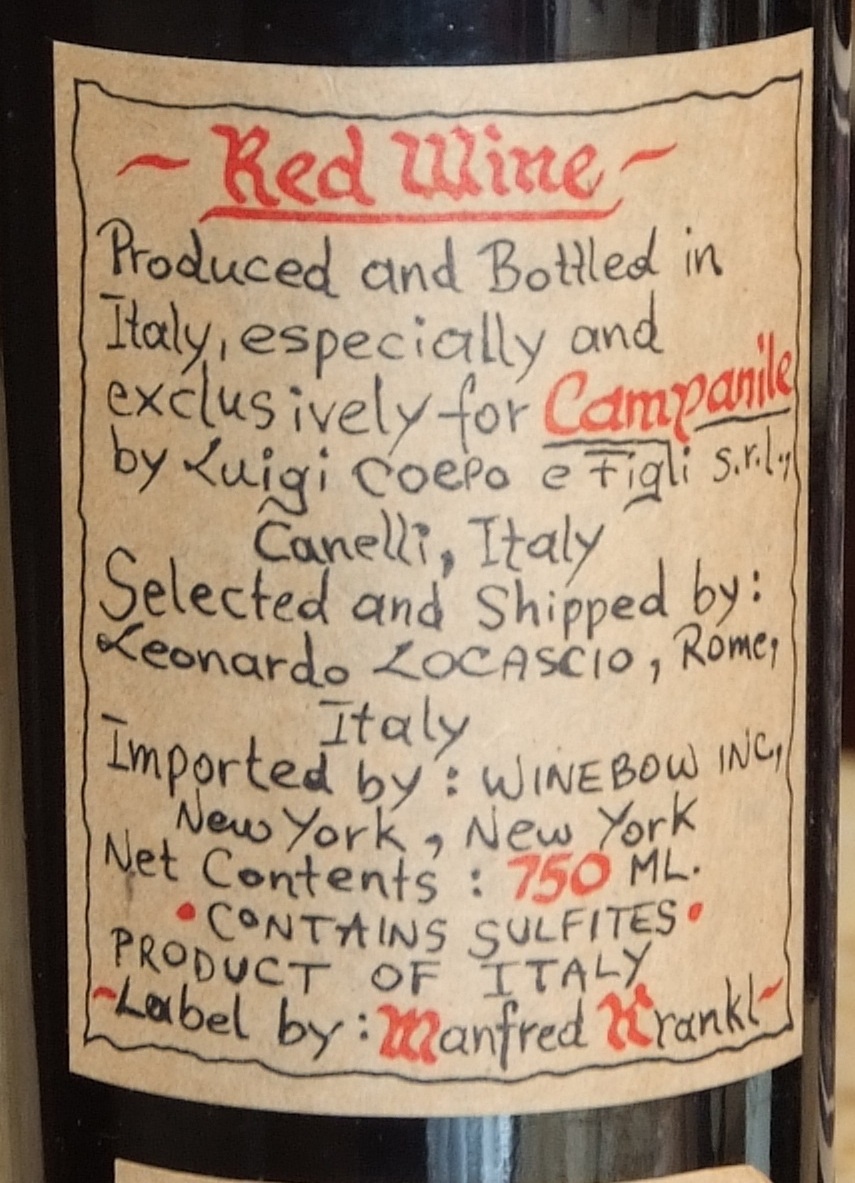 ~ Red Wine ~
Produced and Bottled in
Italy, especially and
exclusively for Campanile
by Luigi Coepo e Figli s.r.l.,
Canelli, Italy
Selected and Shipped by:
Leonardo LOCASCIO, Rome,
Italy
Imported by: WINEBOW INC,
New York, New York
Net Contents: 750 ML.
• CONTAINS SULFITES •
PRODUCT OF ITALY
~Label by: Manfred Krankl~